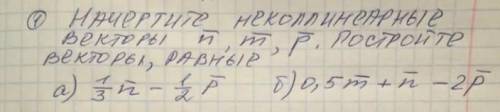 ① Начертите неколлинеарные
векторы n̅, m̅, p̅. Постройте
векторы, равные
а) 1/3 n̅ − 1/2 p̅ б) 0,5 m̅ + n̅ − 2p̅